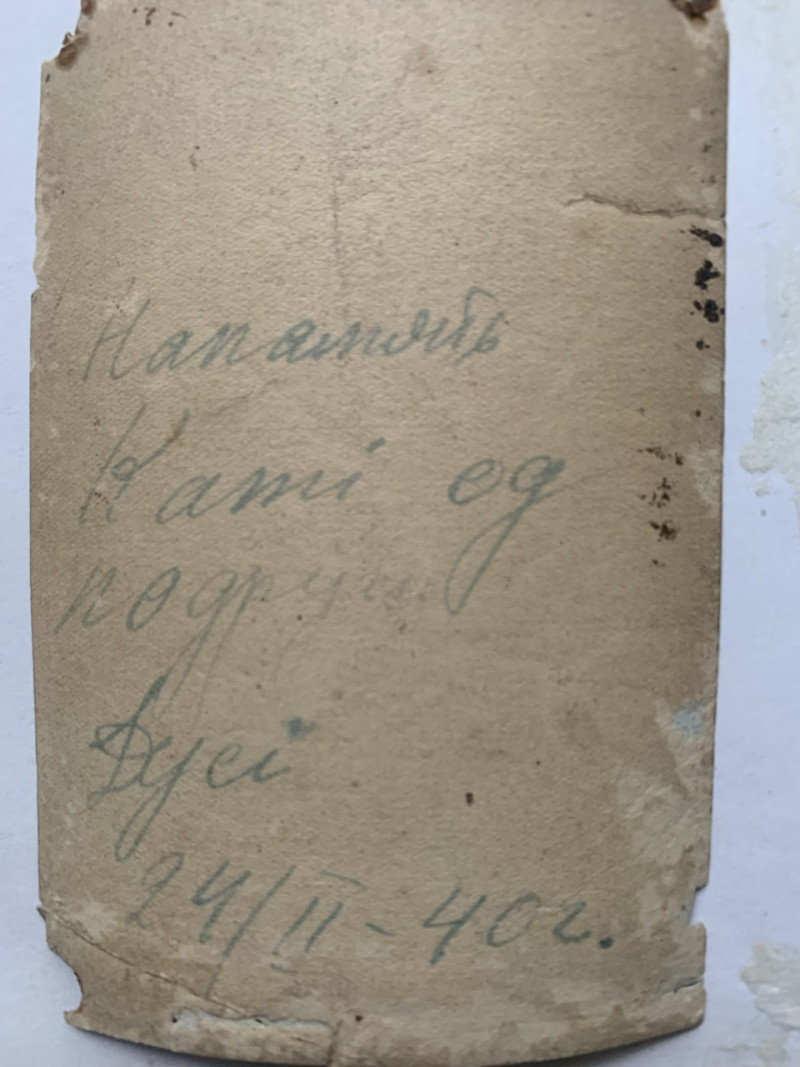 Напамять
Каті од
подруги
Дусі
24/II-40г.